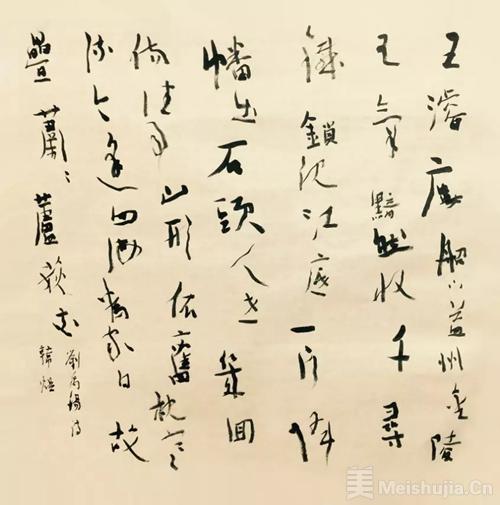 王濬樓船下益州金陵
王氣黯然收千尋
鐵鎖沉江底一片降
幡出石頭人世幾回
傷往事山形依舊枕寒
流今逢四海為家日故
壘蕭々蘆荻秋
劉禹錫詩
韓
美 Meishujia.Cn